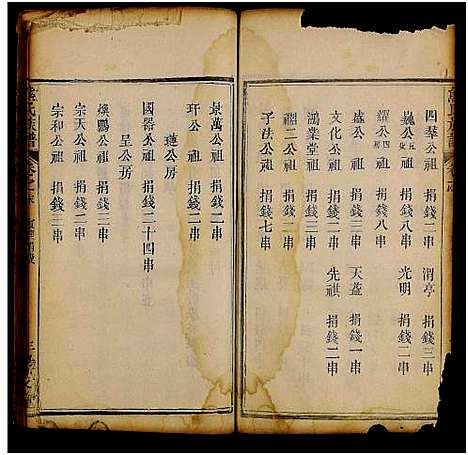 四羣公祖 捐錢二串 渭亭 捐錢三串
巍公 捐錢八串 光明 捐錢二串
耀公祖 捐錢八串
盛公 祖 捐錢三串 天益 捐錢一串
鴻業堂 捐錢三串 先祺 捐錢二串
福二公祖 捐錢二串
子法公祖 捐錢七串
景萬公祖 捐錢二串
玕公 祖 捐錢二串
璉公房
國器公祖 捐錢二十四串
呈公房
煥鵬公祖 捐錢二串
宗天公祖 捐錢二串
宗和公祖 捐錢三串
熊氏族譜 卷之末